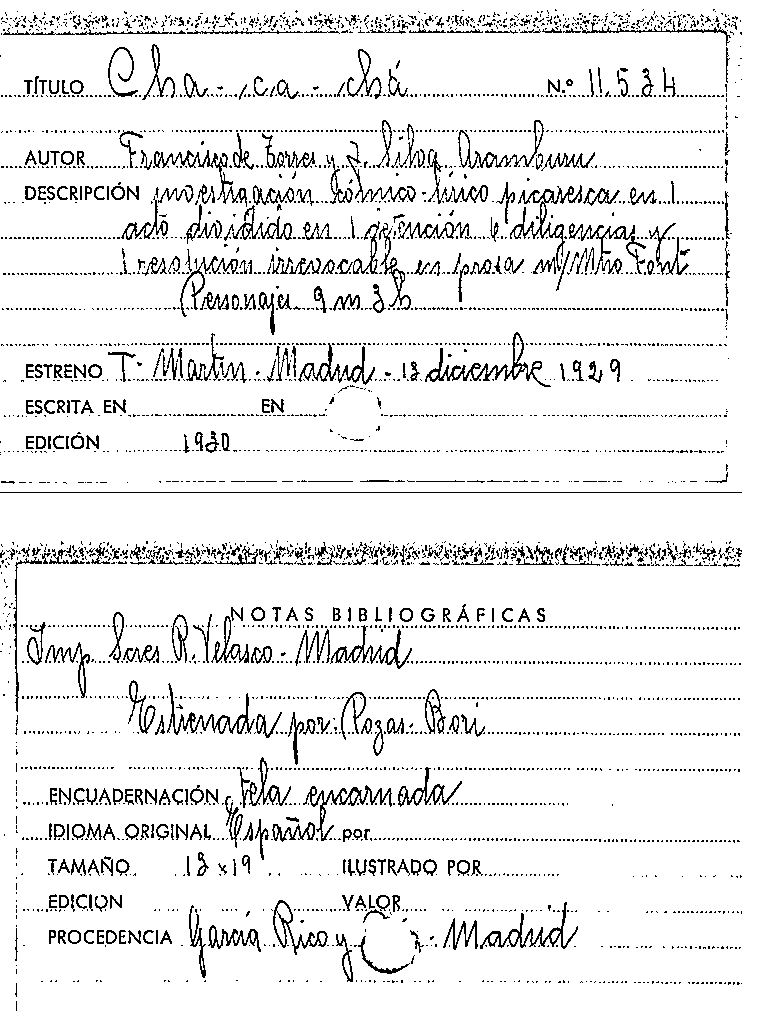 TÍTULO Cha-ca-chá N.º 11.534
AUTOR Francisco de Torres y J. Silva Aramburu
DESCRIPCIÓN investigación cómico-lírico picaresca en 1
acto dividido en 1 detención 6 diligencias y
1 resolución irrevocable en prosa m/Mtro Font
Personajes 9 m 3 h
ESTRENO T- Martin - Madrid - 13 diciembre 1929
ESCRITA EN EN
EDICIÓN 1930
NOTAS BIBLIOGRÁFICAS
Imp. Scres R. Velasco - Madrid
Estrenada por: Rozas - Bori
ENCUADERNACIÓN tela encarnada
IDIOMA ORIGINAL Español por
TAMAÑO 13 x 19 ILUSTRADO POR
EDICION VALOR
PROCEDENCIA García Rico y - Madrid